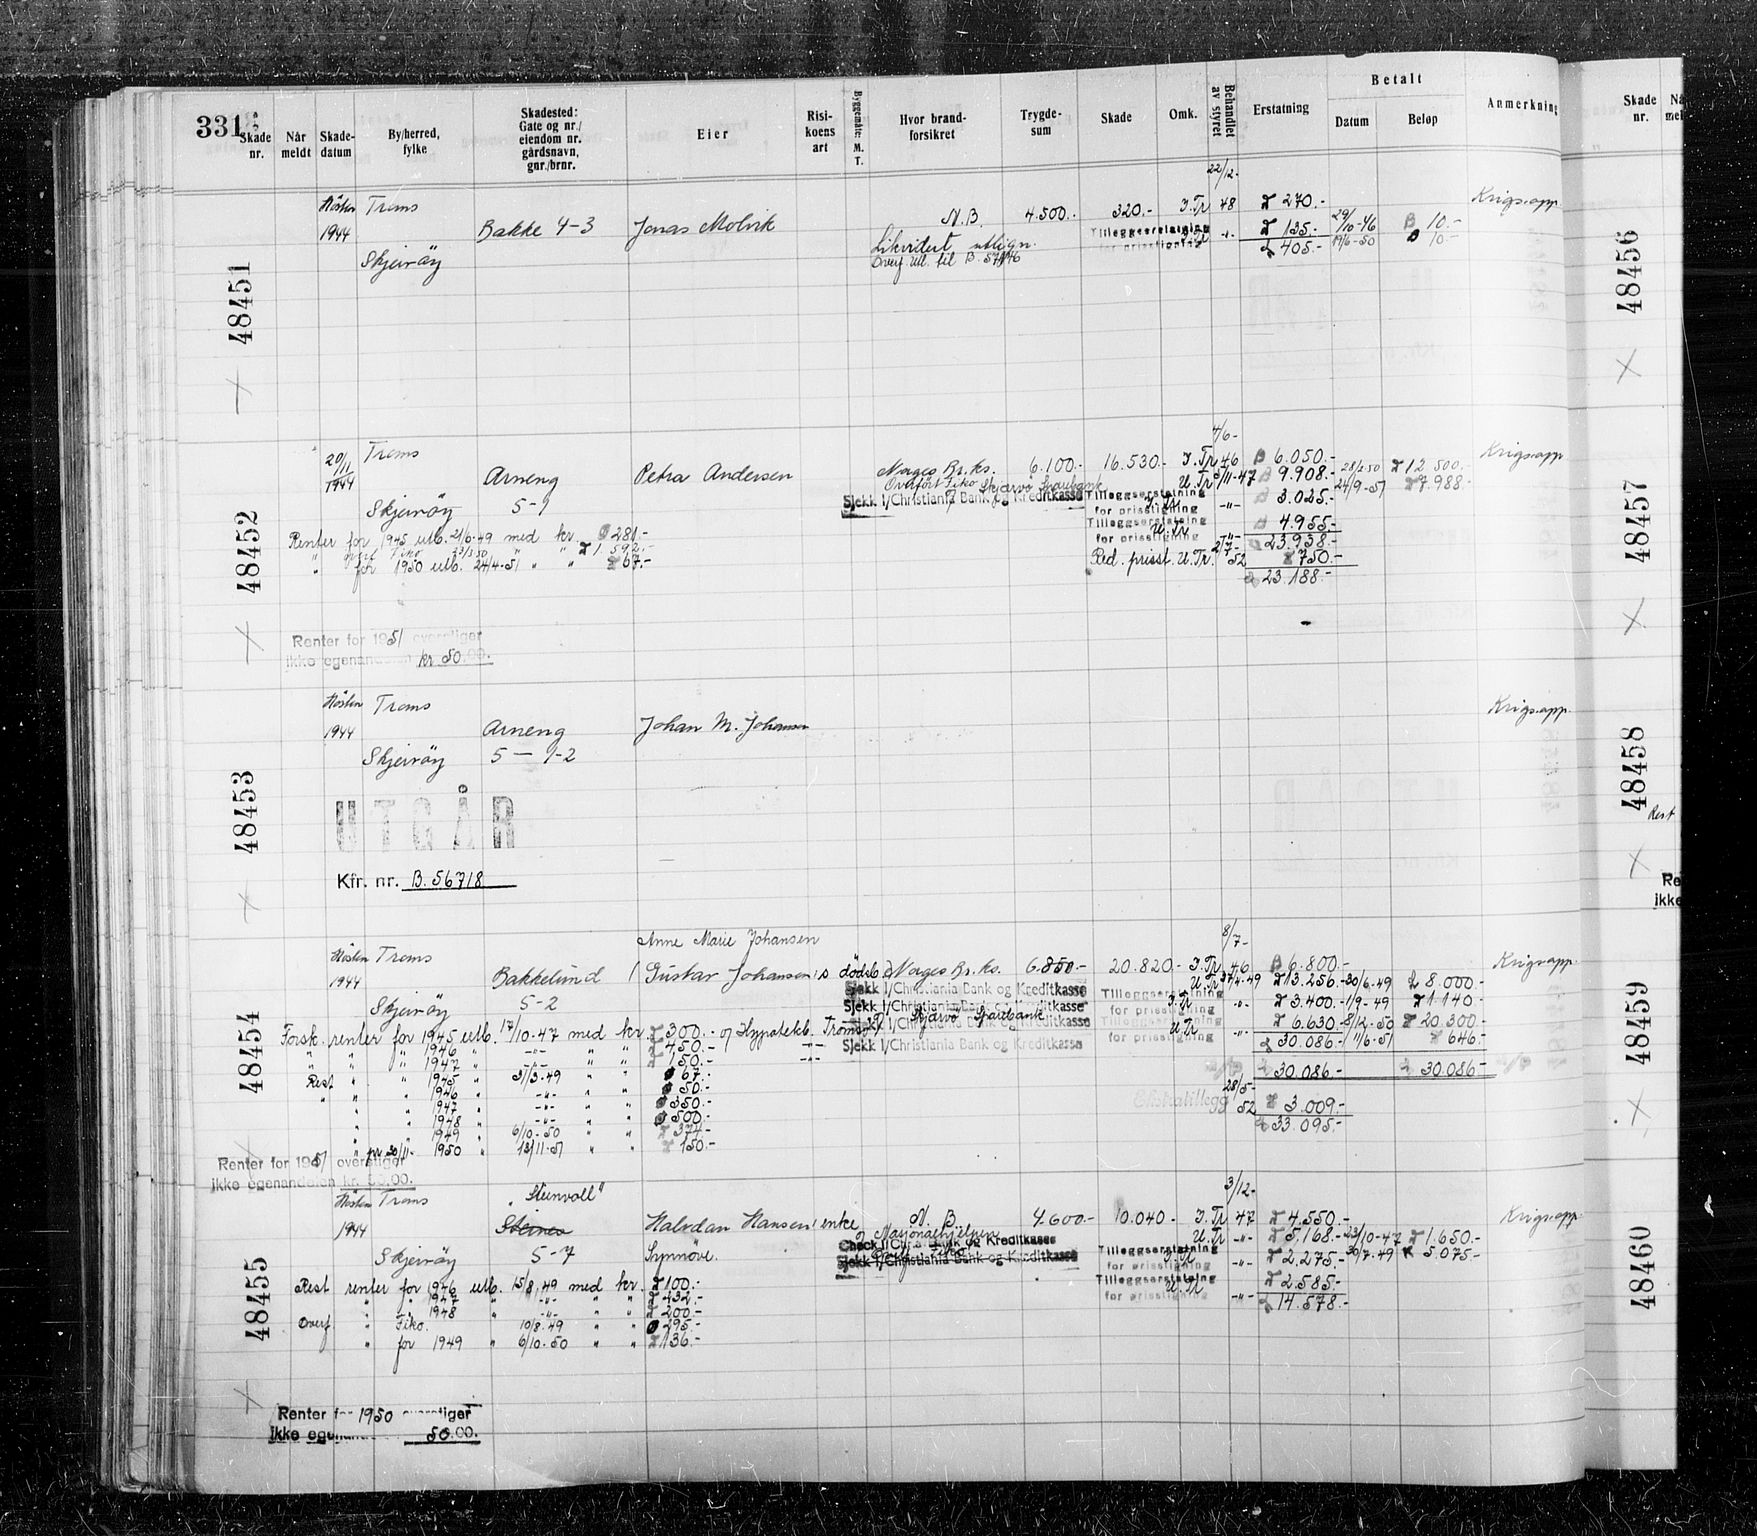 331
Skade nr.
Når meldt
Skade-datum
By/herred, fylke
Skadested: Gate og nr./ eiendom nr. gårdsnavn, gnr./brnr.
Eier
Risi-koens art
Byggemåte: M. T.
Hvor brand-forsikret
Trygde-sum
Skade
Omk.
Behandlet av styret
Erstatning
Betalt
Datum
Beløp
Anmerkning
Skade nr.
48451
22/12-
Hösten Troms N.B. 4.500.- 320.- I.Tr 48 270.- Krigs.opp.
1944 Bakke 4-3 Jonas Molvik Tilleggserstatning 135.- 29/10-46 B 10.-
Skjervöy Likvidert utlign. for prisstigning 405.- 19/6-50 10.-
Overf. utl. til B.
48452
4/6-
20/11 1944 Troms Norges Br.ks. 6.100.- 16.530.- I.Tr 46 6.050.- Krigs.opp
Arneng Petra Andersen Overført Fiko Skjervö Sparebank U.Tr 5/11-47 9.908.- 28/2-50 12.500.-
Skjervöy 5-1 Sjekk 1/Christiania Bank og Kreditkasse Tilleggserstatning for prisstigning -"- 3.025.- 24/9-51 7.988.-
Tilleggserstatning for prisstigning U.Tr 4.955.-
Renter for 1945 utb. 21/6-49 med kr. 281.- 23.938.-
" overf Fiko " " 1.592.- Red. prisst. U.Tr. 2/7-52 750.-
" for 1950 utb. 24/4-51 " " 67.- 23.188.-
Renter for 1951 overstiger
ikke egenandelen kr 50.00.
48453
Hösten Troms Krigs.opp.
1944 Arneng Johan M. Johansen
Skjervöy 5 — 1-2
UTGÅR
Kfr. nr. B. 56718
48454
Anne Marie Johansen 8/7-
Hösten Troms Krigs.opp
1944 Bakkelund (Gustav Johansen's dödsb.) Norges Br.ks. 6.850.- 20.820.- I.Tr 46 6.800.-
Skjervöy 5-2 Sjekk 1/Christiania Bank og Kreditkasse U.Tr 27/4-49 13.256.- 30/6-49 8.000.-
Sjekk 1/Christiania Bank og Kreditkasse Tilleggserstatning for prisstigning I.Tr -"- 3.400.- 1/9-49 1.140.-
Skjervö Sparebank Tilleggserstatning for prisstigning U.Tr -"- 6.630.- 8/12-50 20.300.-
Forsk. renter for 1945 utb. 17/10-47 med kr. 300.- og Hypotekb. Tromsö
" " " 1946 " -"- " " 450.- Sjekk 1/Christiania Bank og Kreditkasse 30.086.- 11/6-51 646.-
" " " 1947 " -"- " " 150.-
Rest " " 1945 " 31/3-49 " " 67.- 30.086.- 30.086.-
" " " 1946 " -"- " " 50.- 28/5-
" " 1947 " -"- " " 350.- 52 3.009.-
" " 1948 " -"- " " 500.- 33.095.-
" " 1949 " 6/10-50 " " 374.-
" pr 20/11- 1950 " 13/11-51 " " 150.-
Renter for 1951 overstiger
ikke egenandelen kr. 50.00.
48455
"Steinvoll" 3/12-
Hösten Troms Krigs.opp.
1944 Steines Halvdan Hansen, enke N.B 4.600.- 10.040.- I.Tr 47 4.550.-
Skjervöy 5-7 Synnöve. og Nasjonalhjelpen U.Tr -"- 5.168.- 23/10-47 1.650.-
Check 1/Chr. Bank og Kreditkasse Tilleggserstatning for prisstigning -"- 2.275.- 30/7-49 5.075.-
Sjekk 1/Christiania Bank og Kreditkasse Overf. Fiko
Rest renter for 1946 utb. 15/8-49 med kr. 100.- Tilleggserstatning for prisstigning U.Tr -"- 2.585.-
" " 1947 " -"- " " 432.- 14.578.-
" " 1948 " -"- " " 200.-
Overf " Fiko. 10/8-49 " " 295.-
" for 1949 " 6/10-50 " " 136.-
Renter for 1950 overstiger
ikke egenandelen 50.00.
48456
48457
48458
Rest
Re
ikke
48459
48460